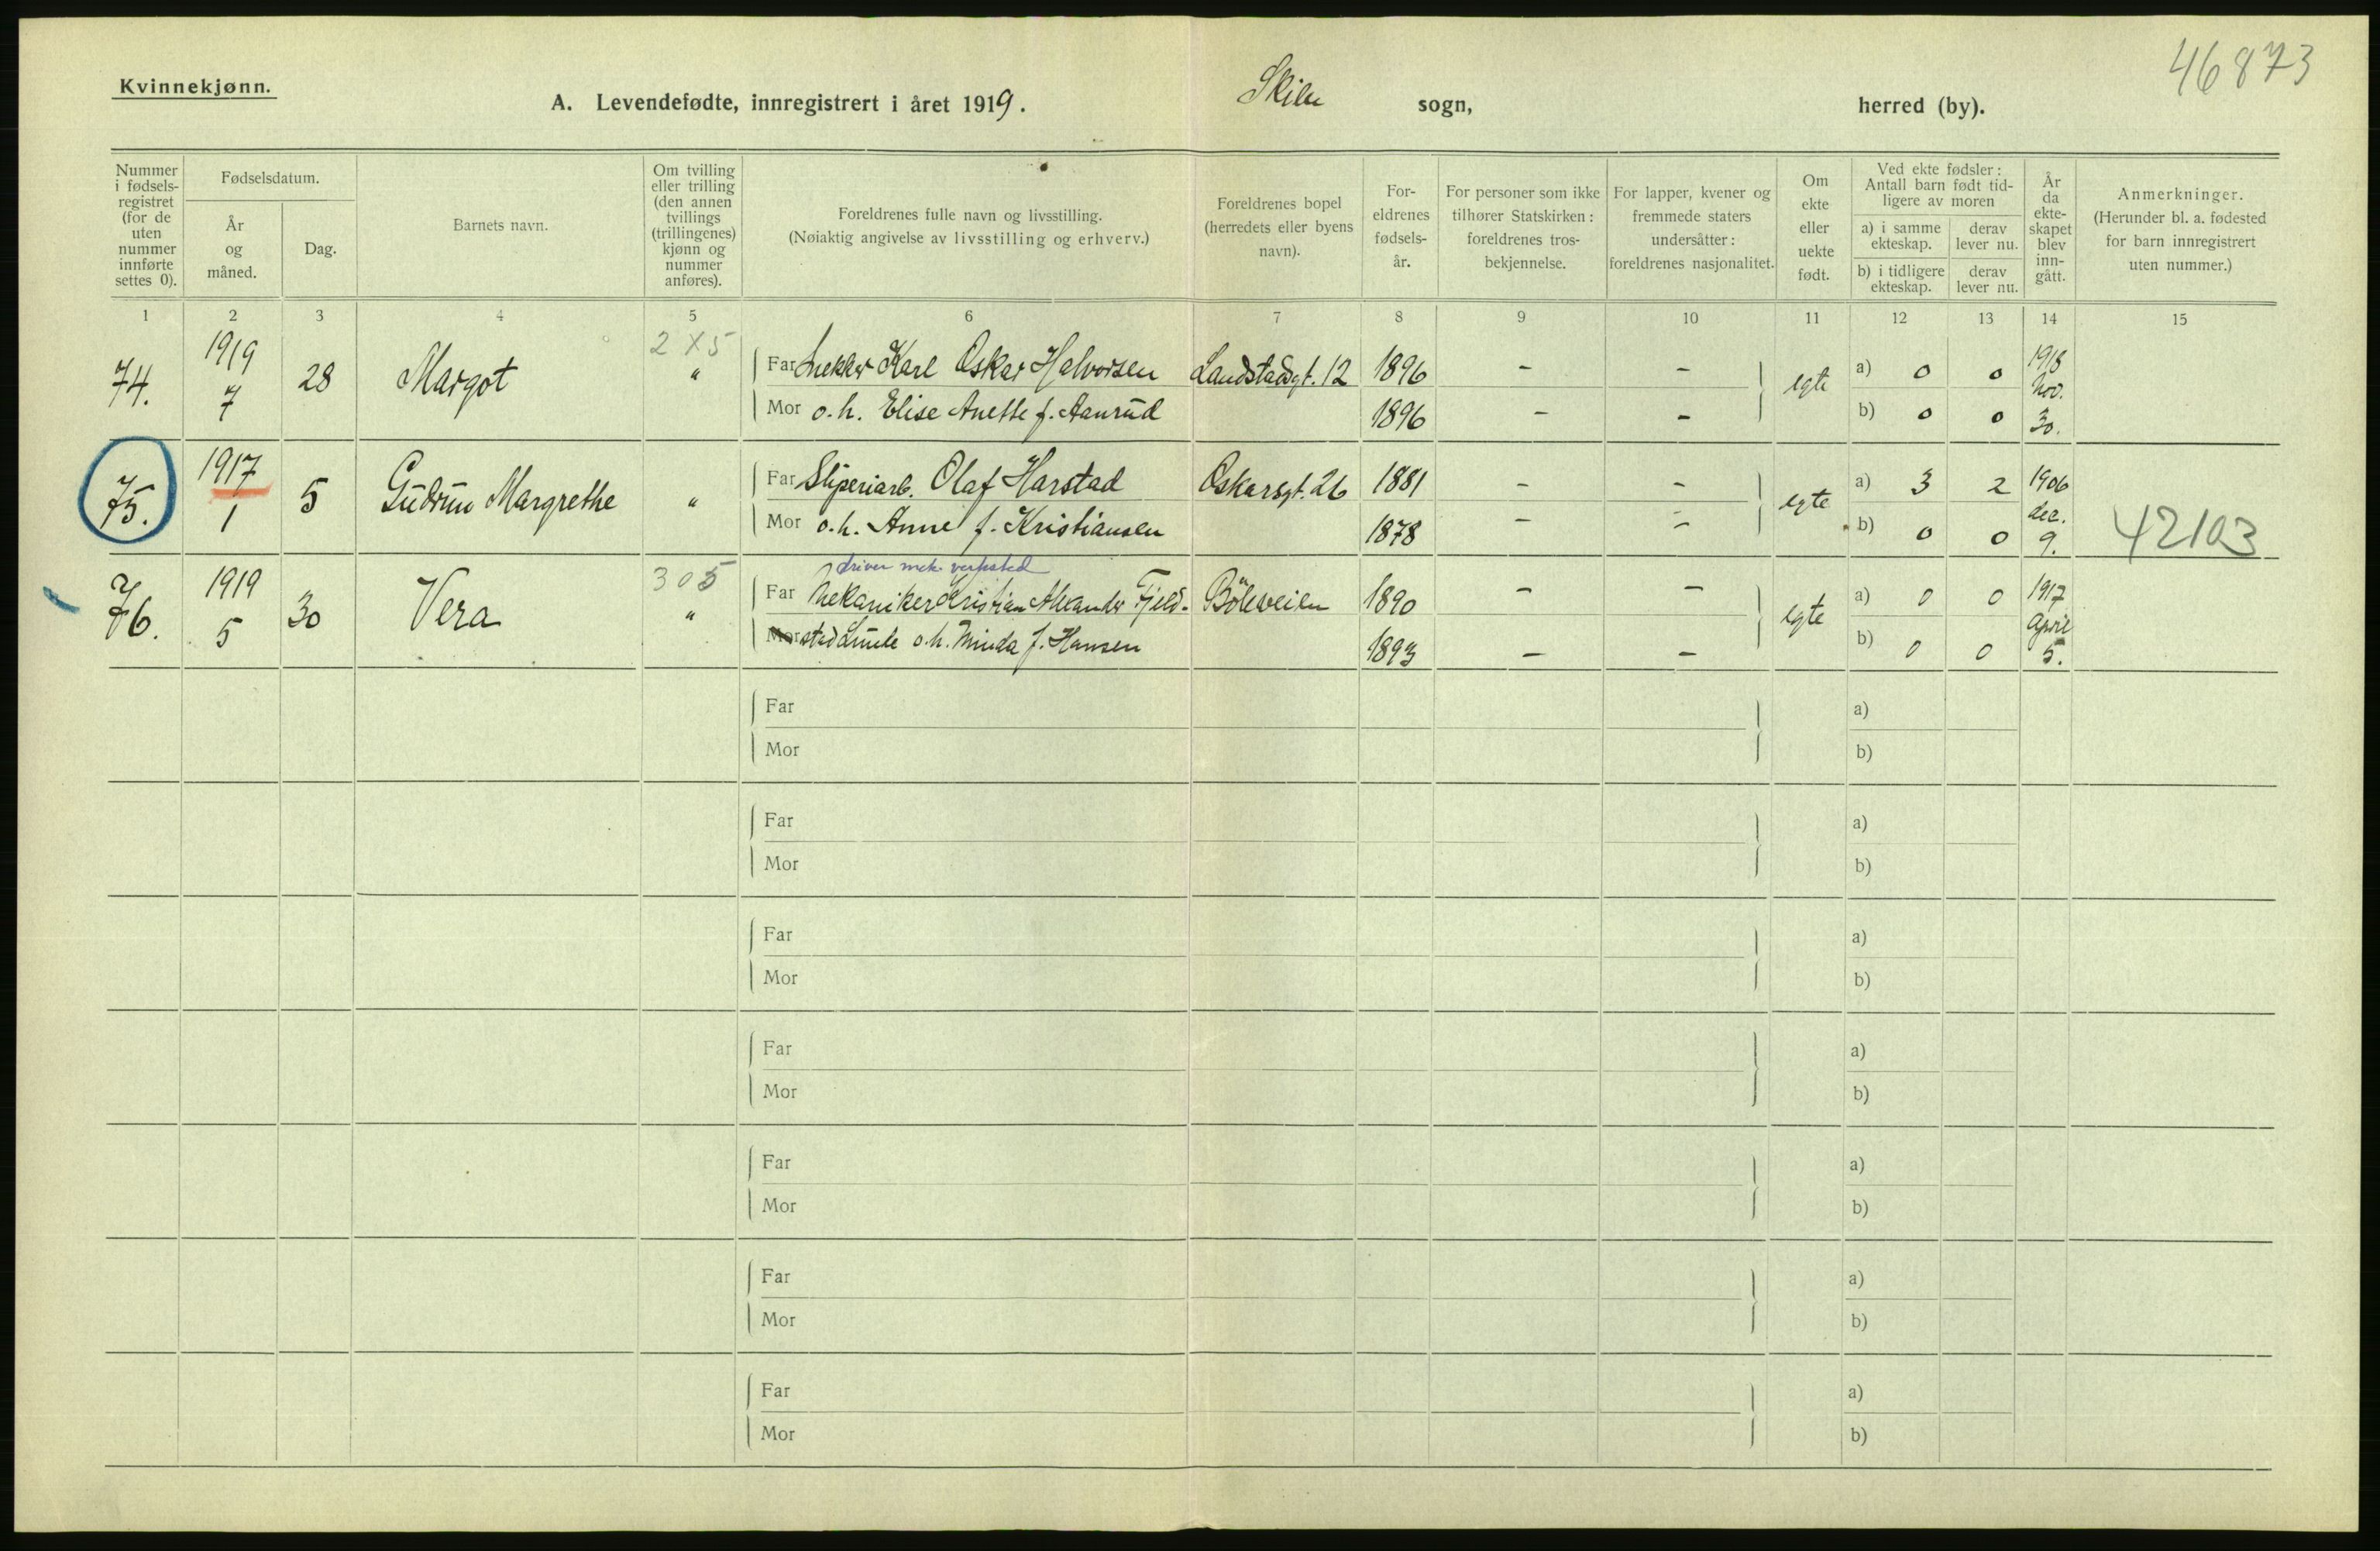 46873
Kvinnekjønn.
A. Levendefødte, innregistrert i året 1919. Skien sogn, herred (by).
Nummer i fødsels-registret (for de uten nummer innførte settes 0).
Fødselsdatum.
År og måned.
Dag.
Barnets navn.
Om tvilling eller trilling (den annen tvillings (trillingenes) kjønn og nummer anføres).
Foreldrenes fulle navn og livsstilling.
(Nøiaktig angivelse av livsstilling og erhverv.)
Foreldrenes bopel (herredets eller byens navn).
For-eldrenes fødsels-år.
For personer som ikke tilhører Statskirken: foreldrenes tros-bekjennelse.
For lapper, kvener og fremmede staters undersåtter: foreldrenes nasjonalitet.
Om ekte eller uekte født.
Ved ekte fødsler: Antall barn født tid-ligere av moren
a) i samme ekteskap.
derav lever nu.
b) i tidligere ekteskap.
derav lever nu.
År da ekte-skapet blev inn-gått.
Anmerkninger.
(Herunder bl. a. fødested for barn innregistrert uten nummer.)
1 2 3 4 5 6 7 8 9 10 11 12 13 14 15
2 X 5
74. 1919 7 28 Margot " Far Karl Oskar Halvorsen Landstadsgt. 12 1896 - - egte a) 0 0 1918 Nov. 30.
Mor o.h. Elise Anette f. Aanrud 1896 - - b) 0 0
75. 1917 1 5 Gudrun Margrethe " Far Sliperiarb. Olaf Harstad Oskarsgt. 26 1881 - - egte a) 3 2 1906 dec. 9.
Mor o.h. Anne f. Kristiansen 1878 - - b) 0 0 42103
driver mek. verksted
305
76. 1919 5 30 Vera " Far Mekaniker Kristian Alexander Fjeld- Böleveien 1890 - - egte a) 0 0 1917 April 5.
Mor stad o.h. Minda f. Hansen 1893 - - b) 0 0
Far a)
Mor b)
Far a)
Mor b)
Far a)
Mor b)
Far a)
Mor b)
Far a)
Mor b)
Far a)
Mor b)
Far a)
Mor b)